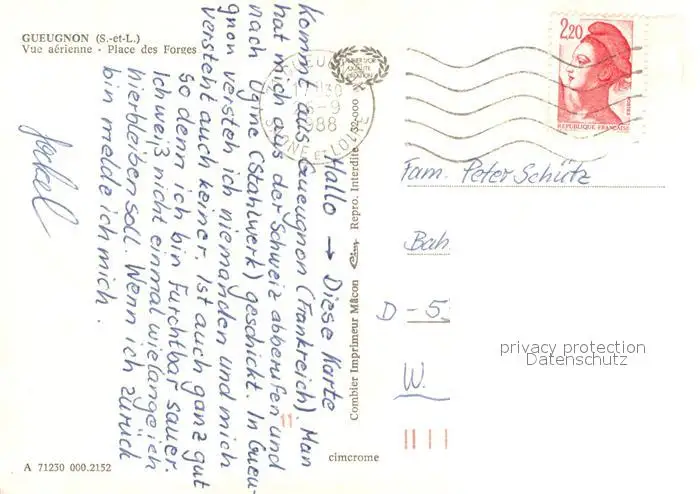 GUEUGNON (S.-et-L.)
Vue aérienne - Place des Forges
Hallo → Diese Karte
kommt aus Gueugnon (Frankreich). Man
hat mich aus der Schweiz abberufen und
nach Ugine (Stahlwerk) geschickt. In Gueu-
gnon versteh ich niemanden und mich
versteht auch keiner. Ist auch ganz gut
so denn ich bin furchtbar sauer.
Ich weiß nicht einmal wielange ich
hierbleiben soll. Wenn ich zurück
bin melde ich mich.
Jockel
A 71230 000.2152
Combier Imprimeur Mâcon Cim Repro. Interdite 32-000
cimcrome
1988
SAONE ET LOIRE
2,20
REPUBLIQUE FRANÇAISE
Fam. Peter Schütz
Bah
D - 5
W.
privacy protection
Datenschutz